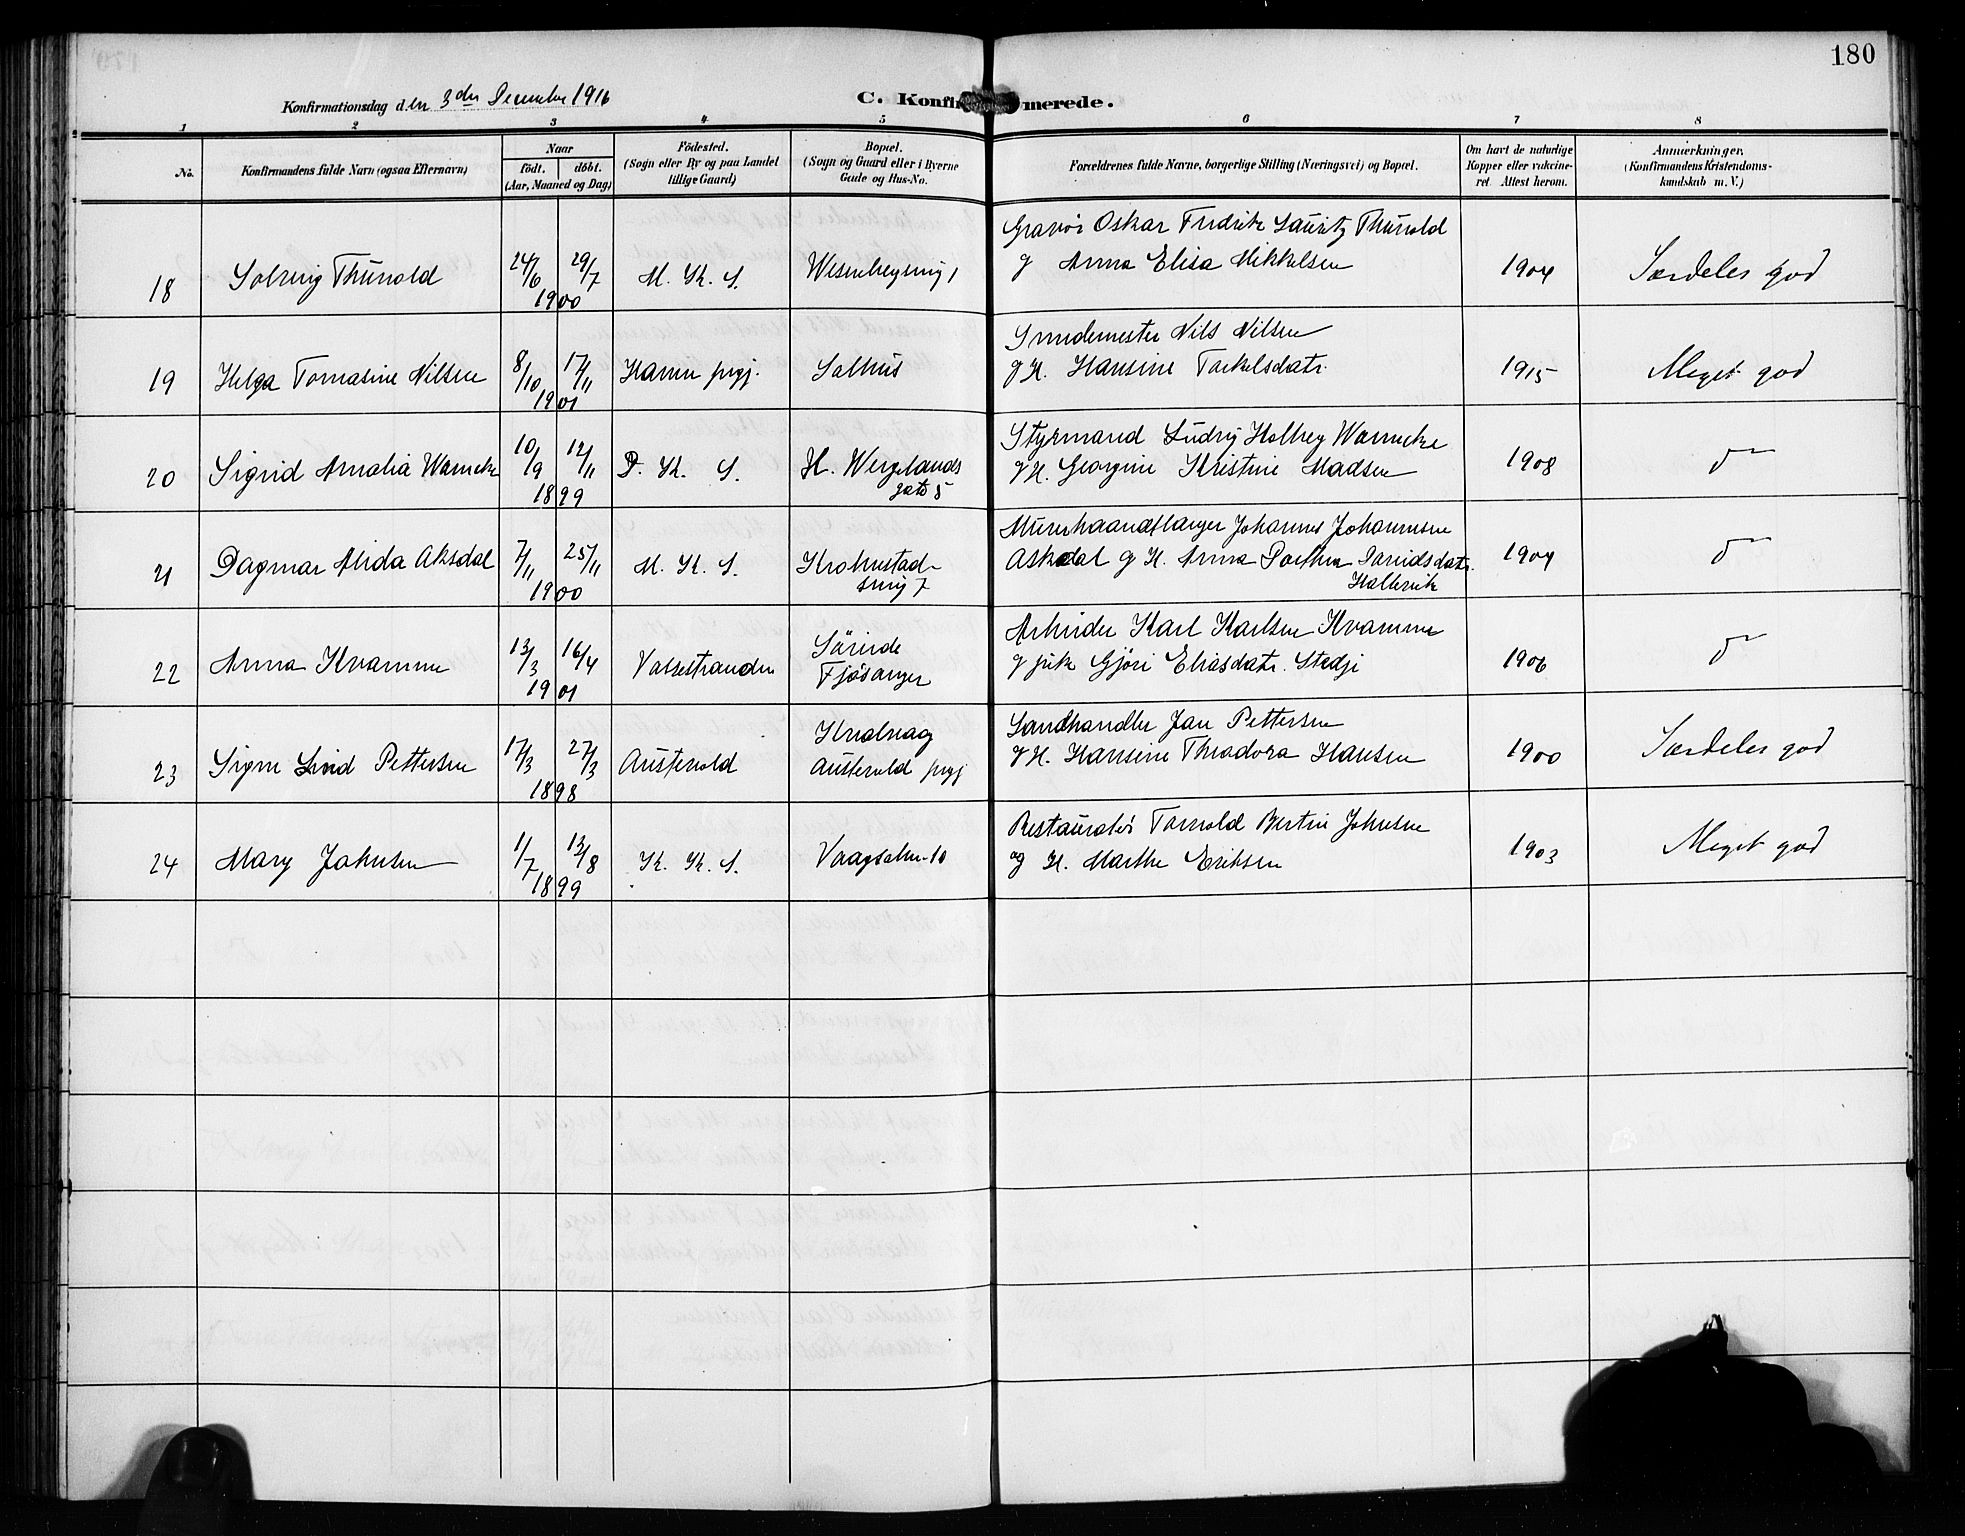 180
Konfirmationsdag den 3die December 1916
C. Konfirmerede.
1 2 3 4 5 6 7 8
No.
Konfirmandens fulde Navn (ogsaa Efternavn)
Naar
født. døbt.
(Aar, Maaned og Dag)
Fødested.
(Sogn eller By og paa Landet
tillige Gaard)
Bopæl.
(Sogn og Gaard eller i Byerne
Gade og Hus-No.
Forældrenes fulde Navne, borgerlige Stilling (Næringsvei) og Bopæl.
Om havt de naturlige
Kopper eller vaccine-
ret. Attest herom.
Anmærkninger,
(Konfirmandens Kristendoms-
kundskab m. V.)
Gravør Oskar Fredrik Lauritz Thunold
18 Solveig Thunold 24/6 29/7 M. K. S. 1 og Anna Elisa Mikkelsen 1904 Særdeles god
1900
Smedemester Nils Nilsen
19 Helga Tomasine Nilsen 8/10 17/11 Hamre prgj. Salhus og H. Hansine Torkelsdatr. 1915 Meget god
1901
Styrmand Ludvig Holbeg Warncke
20 Sigrid Amalia Warncke 10/9 12/11 D. K. S. H. Wergelands og H. Georgine Kristine Madsen 1908 do
1899 gate 5
Murerhaandlanger Johannes Johannesen
21 Dagmar Alida Aksdal 7/11 25/11 M. K. S. Krohnstad- Askdal og H. Anna Davidsdatr. 1904 do
1900 smug 7
Arbeider Karl Karlsen Kvamme
22 Anna Kvamme 13/3 16/4 Valestranden Sørinde og Gjøri Eliasdatr. Stedje 1906 do
1901 Fjøsanger
Landhandler Jan Pettersen
23 Signe Lind Pettersen 17/3 27/3 Austevold Austevold prgj og H. Hansine Theadora Hansen 1900 Særdeles god
1898
Restauratør Tornold Bertin Johnsen
24 Mary Johnsen 1/7 13/8 K. K. S. Vaagsalm. 10 og H. Marthe Eriksen 1903 Meget god
1899